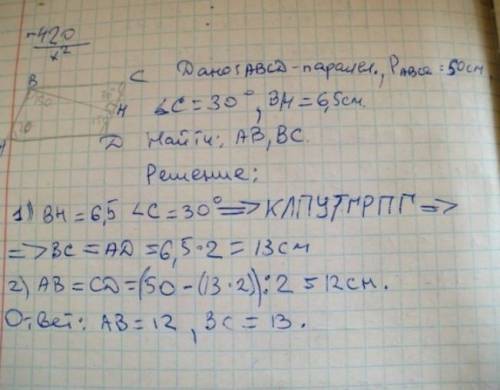 №420
B C Дано: ABCD-паралел., PABCD=50см
∠C=30°, BH=6,5см.
H
A D Найти: AB, BC.
Решение:
1) BH=6,5 ∠C=30° => КЛПУТНРПГ =>
=> BC=AD=6,5·2=13см
2) AB=CD=(50-(13·2)):2=12см.
Ответ: AB=12, BC=13.